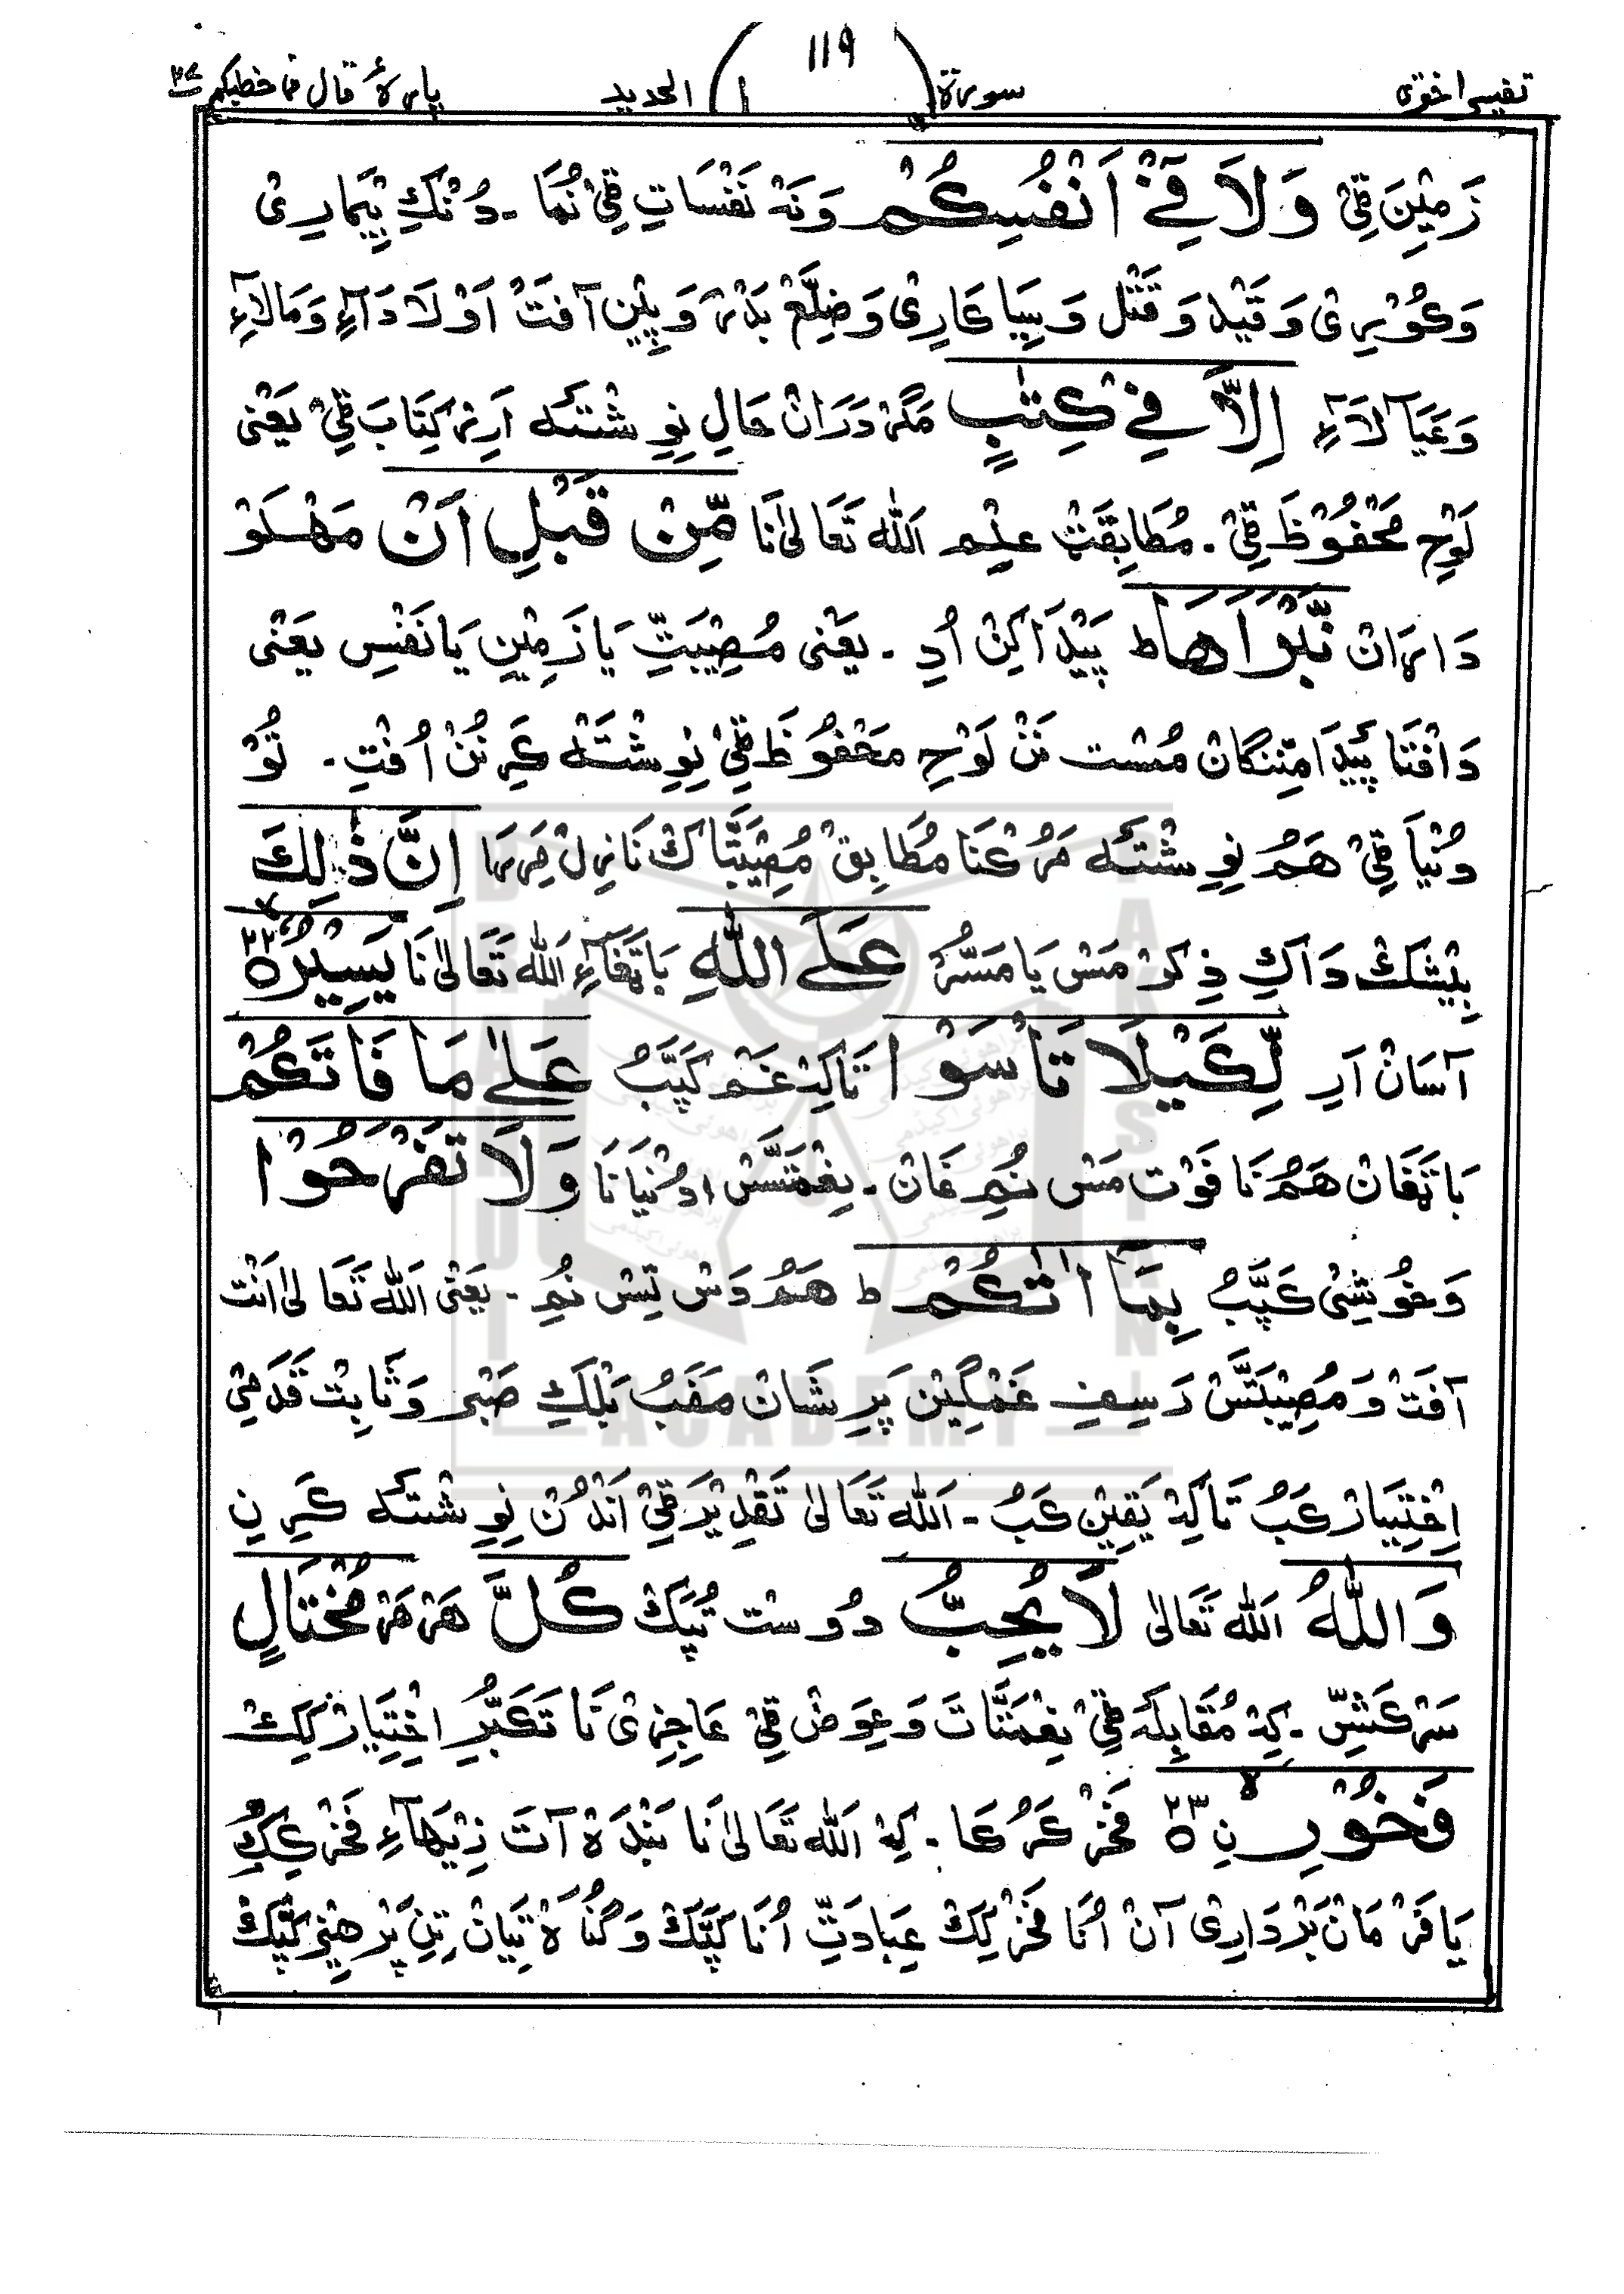 تفسیر اخوی سورة ( ۱۱۹ ) الحدید پارہ قال فما خطبکم ۲۷
زَمِیْنَ قِیْ وَلَا فِیْٓ اَنْفُسِكُمْ وَنَہْ نَفْسَاتِ قِیْ نُمَا - دُنْکِ بِیْمَارِیْ
وَكُوْرِیْ وَقَیْدْ وَقَتْل وَسِیَا كَارِیْ وَضِلَّعْ بَدْرْ وَپِیْنِ آفَتْ اَوْلَادَآءِ وَمَالَاءِ
وَعَیَالَآءِ اِلَّا فِیْ كِتٰبٍ مَگَرْ دَرَانْ حَالِ نِوِشْتَہ اَرِرْ كِتَابَ قِیْ یَعْنِی
لَوْحِ مَحْفُوْظَ قِیْ - مُطَابِقَتْ عِلْمِ اَللّٰہ تَعَالٰی نَا مِّنْ قَبْلِ اَنْ مَهْلَوْ
دَارَانْ نَّبْرَاَهَا ط پَیْدَا كِنْ اُدِ - یَعْنِی مُصِیْبَتِّ یَا زَمِیْنِ یَا نَفْسِ یَعْنِی
دَافْتَا پَیْدَا مِّنِنْگَانْ مُسْت نَنْ لَوْحِ مَحْفُوْظَ قِیْ نِوِشْتَہ كَرِنُنْ اُفْتِ - تُوْ
دُنْیَا قِیْ هَمُ نِوِشْتَہ مَرُكْنَا مُطَابِقْ مُصِیْبَتَاکْ نَازِلْ مَرِرَہ اِنَّ ذٰلِكَ
بِیْشَكْ دَاکِ ذِكَرْ مَسْ یَا مَسُّرْ عَلَى اللّٰهِ بَاتْغَآءِ اَللّٰہ تَعَالٰی نَا یَسِیْرٌ ۲۲
آسَانْ اَرِ لِّكَیْلَا تَاْسَوْا تَاكِہْ غَمْ كَپَّبُ عَلٰى مَا فَاتَكُمْ
بَاتَغَانْ هَمُنَا فَوْت مَسْ نُمِ غَانْ - نِعْمَتَّسْ دُنْیَا نَا وَلَا تَفْرَحُوْا
وَخُوْشِیْ كَپَّبُ بِمَآ اٰتٰكُمْ ط هَمُ دَسْ تِسْ نُمِ - یَعْنِی اَللّٰہ تَعَالٰی اَنْتْ
آفَتْ وَمُصِیْبَتَّسْ رَسِفِ غَمْگِیْن پَرِشَانْ مَفَبُ بَلْكِ صَبْر وَثَابِتْ قَدَمِیْ
اِخْتِیَارْ كَبُ تَاكِہْ یَقِیْن كَبُ - اَللّٰہ تَعَالٰی تَقْدِیْرَ قِیْ اَنْدُنْ نِوِشْتَہ كَرِنِ
وَاللّٰهُ اَللّٰہ تَعَالٰی لَا یُحِبُّ دُوسْت تُپَكْ كُلَّ هَرْ مَرْ مُخْتَالٍ
سَرْكَشِّ - كِہْ مُقَابِلَہ قِیْ نِعْمَتَّاتَ وَعِوَضْ قِیْ عَاجِزِیْ نَا تَكَبُّرِ اخْتِیَارْ كِكْ
فَخُوْرِ نِ ۲۳ فَخْرْ كَرُكَا - كِہْ اَللّٰہ تَعَالٰی نَا بَنْدَہ آتَ زِیْهَآءِ فَخْرْ كِكِ
یَا فَرْمَانْ بَرْدَارِیْ آنْ اُنَا فَخْرْ كِكْ عِبَادَتِّ اُنَا كَپَّكْ وَگُنَاہْ تِیَانْ تِنِ پَرْهِیْزْ كَپَّكْ
BRAHUI ACADEMY PAKISTAN